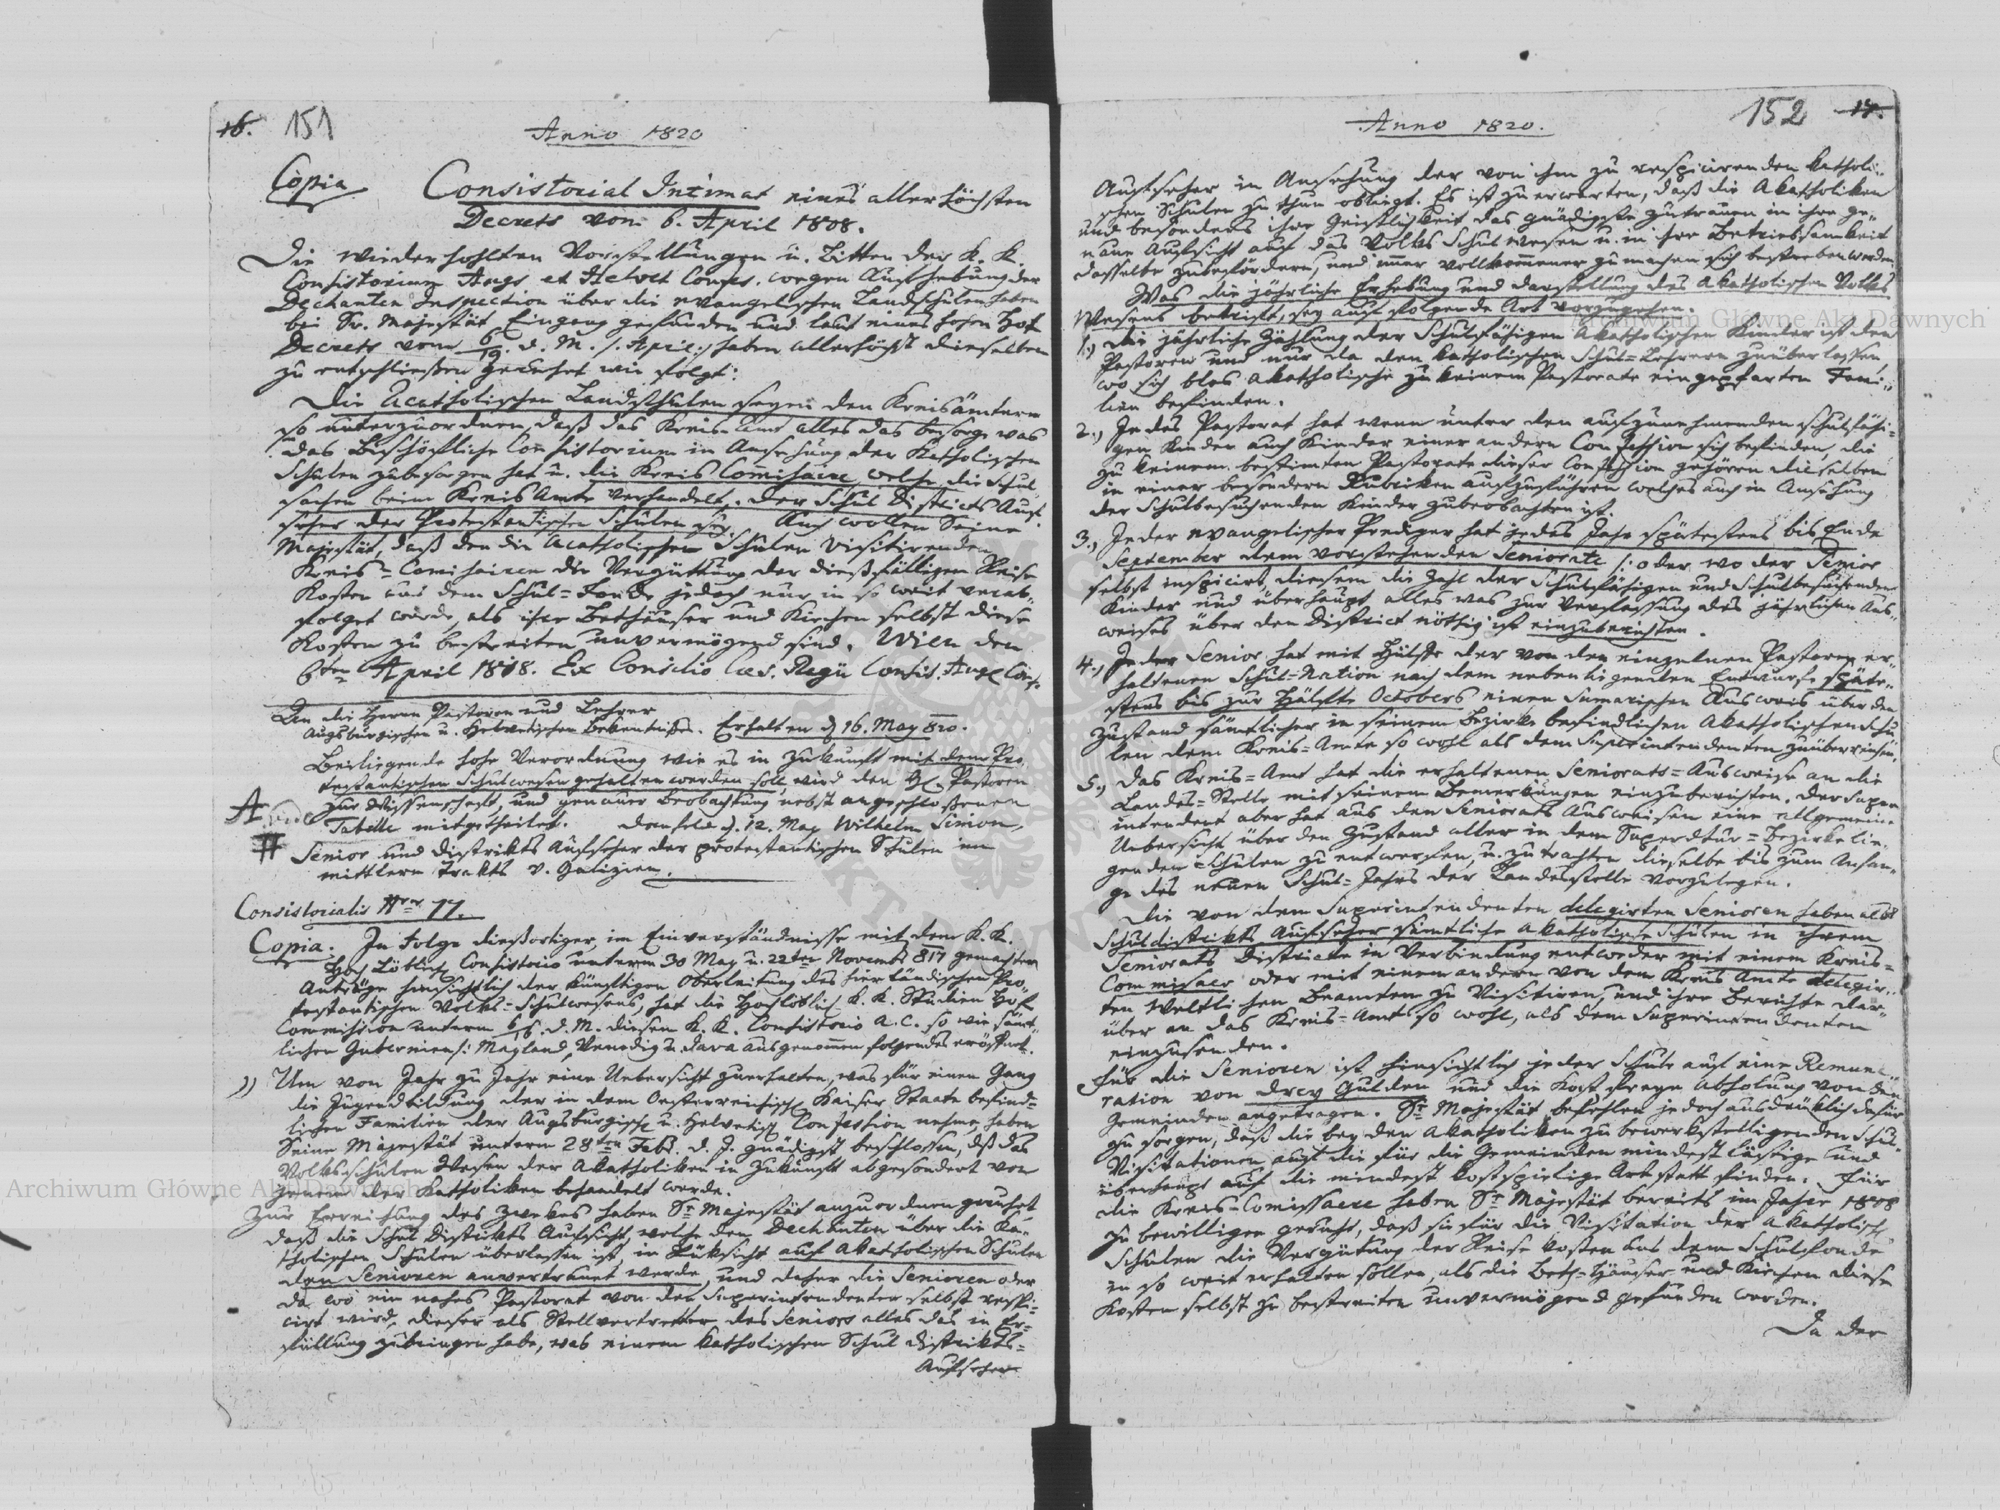 16. 151
Anno 1820
Copia
Consistorial Intimat eines allerhöchsten
Decrets vom 6. April 1808.
Die wiederhohlten Vorstellungen u. Bitten der K. K.
Consistorien Augs. et Helvet Confes. wegen Aufhebung der
Dechanten Inspection über die evangelischen Landschulen haben
bei Sr. Majestät Eingang gefunden und laut eines hohen Hof
Decrets vom 6/19. d. M. /: April :/ haben allerhöchst dieselben
zu entschließen geruhet wie folgt:
Die Acatholischen Landschulen seyen den Kreisämtern
so unterzuordnen, daß das Kreis-Amt alles das besorge was
das Bischöfliche Consistorium in Ansehung der Katholischen
Schulen zu besorgen hat u. die Kreis Commissaire, welche die Schul
sachen beim Kreis Amte verhandelt, der Schul Districts Auf
seher der Protestantischen Schulen sey. Auch wollen Seine
Majestät, daß den die Acatholischen Schulen visitirenden
Kreis-Comissairen die Vergüttung der dießfälligen Reise
Kosten aus dem Schul-Fonde jedoch nur in so weit verab-
folget werde, als ihre Bethäuser und Kirchen selbst diese
Kosten zu bestreiten unvermögend sind. Wien den
6ten April 1808. Ex Consilio Caes. Regii Consis. Aug. Conf.
An die Herrn Pastoren und Lehrer
Augsburgischen u. Helvetischen Bekentnißes. Erhalten d. 16. May 820.
Beiliegende hohe Verordnung wie es in Zukunft mit dem Pro
testantischen Schulwesen gehalten werden soll, wird den H. Pastoren
zur Wissenschaft, und genauer Beobachtung nebst angeschlossenen
Tabelle mitgetheilet. d. 12. May Wilhelm Simion,
Senior und Distrikts Aufseher der protestantischen Schulen im
mittlern Trakts v. Galizien.
Consistorialis Nro 77.
Copia. In Folge dießortiger, im Einverständnisse mit dem K. K.
Hoch Löblich Consistorio unterm 30 May u. 22ten Novembr 817 gemachten
Anträge hinsichtlich der künftigen Oberleitung des hierländischen Pro-
testantischen Volks-Schulwesens, hat die Hochlöblich K. K. Studien Hof
Commission unterm d. M. diesem K. K. Consistorio A. C. so wie sämt-
lichen Gubernien /: Mayland, Venedig u. Zara ausgenommen folgendes eröffnet.
1) Um von Jahr zu Jahr eine Uebersicht zu erhalten, was für einen Gang
die Jugendbildung der in dem Oesterreichisch Kaiser Staate befind-
lichen Familien der Augsburgisch u. Helvetisch Confession nehme, haben
Seine Majestät unterm 28ten Feb. d. J. gnädigst beschlossen, daß das
Volksschulen Wesen der Akatholiken in Zukunft abgesondert von
jenem der Katholiken behandelt werde.
Zur Erreichung des Zwekes haben Sr Majestät anzuordnen geruhet,
daß die Schul Distrikts Aufsicht, welche den Dechanten über die Ka-
tholischen Schulen überlassen ist, in Rüksicht auf Akatholischen Schulen
den Senioren anvertrauet werde, und daher die Senioren oder
da wo ein nahes Pastorat von der Superintendenten selbst respi-
cirt wird, dieser als Stellvertretter des Seniors alles das in Er-
füllung zu bringen habe, was einem katholischen Schul Distrikts-
Aufseher
152 17.
Anno 1820.
Aufseher in Ansehung der von ihm zu respicirenden katholi-
schen Schulen zu thun obliegt. Es ist zu erwarten, daß die Akatholiken
und besonders ihre Geistlichkeit das gnädigste Zutrauen, in ihre ge-
naue Aufsicht auf das Volks Schul wesen u. in ihre Betriebsamkeit
dasselbe zu befördern, und immer vollkommener zu machen sich bestreben werden.
Was die jährliche Erhebung und Darstellung des Akatholischen Volks
Wesens betrift, sey auf folgende Art vorzugehen.
1.) Die jährliche Zählung der Schulfähigen Akatholischen Kinder ist den
Pastoren und nur da den katholischen Schul-Lehrern zu überlassen,
wo sich blos Akatholische zu keinem Pastorate eingepfarten Fami-
lien befinden.
2.) Jedes Pastorat hat wenn unter den aufzunehmenden schulfähi-
gen Kinder auch Kinder einer andern Confession sich befinden, die
zu keinem bestimten Pastorate dieser Confession gehören dieselben
in einer besondern Rubriken aufzuführen welches auch in Ansehung
der Schulbesuchenden Kinder zu beobachten ist.
3.) Jeder evangelischer Prediger hat jedes Jahr spätestens bis Ende
September dem vorstehenden Seniorate /: oder wo der Senior
selbst inspicirt, diesem die Zahl der Schulfähigen und Schulbesuchenden
Kinder und überhaupt alles was zur Verfassung des jährlichen Aus-
weises über den District nöthig ist einzuberichten.
4.) Jeder Senior hat mit Hülfe der von den einzelnen Pastoren er-
haltenen Schul-Nation nach dem nebenliegenden Entwurfe späte-
stens bis zur Hälfte Octobers einen Sumarischen Ausweis über den
Zustand sämtlicher in seinem Bezirke befindlichen Akatholischen Schu
len dem Kreis-Amte so wohl als dem Superintendenten zu überreichen.
5.) Das Kreis-Amt hat die erhaltenen Seniorats-Ausweise an die
Landes-Stelle mit seinen Bemerkungen einzuberichten. Der Super
intendent aber hat aus den Seniorats Ausweisen eine allgemein.
Uebersicht über den Zustand aller in dem Superdtur-Bezirke lie-
genden Schulen zu entwerfen, u. zu trachten dieselbe bis zum Anfan-
ge des neuen Schul-Jahrs der Landesstelle vorzulegen.
Die von dem Superintendenten delegirten Senioren haben als
Schuldistrikts Aufseher sämtliche Akatholische Schulen in ihrem
Seniorats Districte in Verbindung entweder mit einem Kreis-
Commissaer oder mit einem andern von dem Kreis Amte delegir-
ten Weltlichen Beamten zu Visitiren, und ihre Berichte dar-
über an das Kreis-Amt so wohl, als dem Superintendenten
einzusenden.
Für die Senioren ist hinsichtlich jeder Schule auf eine Remune-
ration von drey Gulden und die Kostfreye Abholung von den
Gemeinden angetragen. Sr Majestät befehlen jedoch ausdrüklich dafür
zu sorgen, daß die bey den Akatholiken zu bewerkstelligenden Schul-
Visitationen auf die für die Gemeinden mindest lästige und
überhaupt auf die mindest kostspielige Art statt finden. Für
die Kreis-Comissaere haben Sr Majestät bereits im Jahre 1808
zu bewilligen geruht, daß sie für die Visitation der Akatholisch
Schulen die Vergütung der Reisekosten aus dem Schulfonde
in so weit erhalten sollen, als die Beth-Häuser und Kirchen diese
Kosten selbst zu bestreiten unvermögend gefunden werden.
Da der
Archiwum Główne Akt Dawnych
Archiwum Główne Akt Dawnych